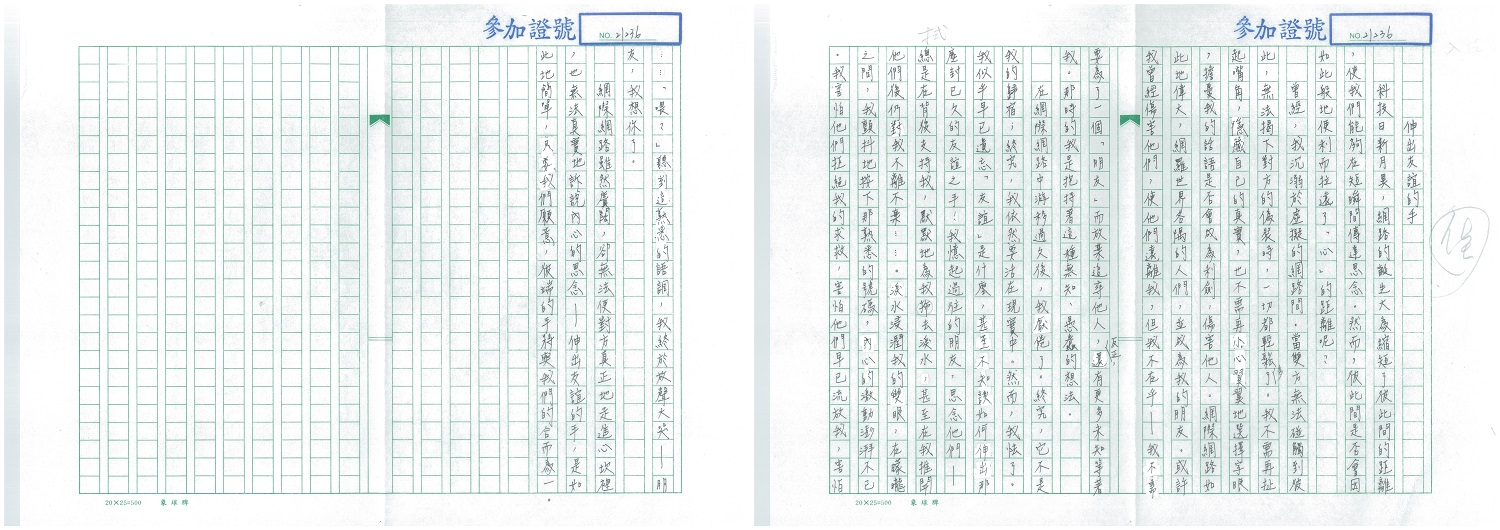 參加證號
NO. 21236
伸出友誼的手
科技日新月異,網路的誕生大為縮短了彼此間的距離
,使我們能夠在短瞬間傳達思念。然而,彼此間是否會因
如此般地便利而拉遠了「心」的距離呢?
曾經,我沉溺於虛擬的網路間。當雙方無法碰觸到彼
此,無法揭下對方的偽裝時,一切都輕鬆了。我不需再扯
起嘴角,隱藏自己的真實,也不需再小心翼翼地選擇字眼
,擔憂我的話語是否會成為利劍,傷害他人。網際網路如
此地偉大,網羅世界各隅的人們,並成為我的朋友。或許
我曾經傷害他們,使他們遠離我,但我不在乎——我不需
要為了一個「朋友」而放棄追尋他人,還有更多未知等著
我。那時的我是抱持著這種無知、愚蠢的想法。
在網際網路中游移過久後,我厭倦了。終究,它不是
我的歸宿;終究,我依然要活在現實中。然而,我怯了。
我似乎早已遺忘「友誼」是什麼,甚至不知該如何伸出那
塵封已久的友誼之手!我憶起過往的朋友,思念他們——
總是在背後支持我,默默地為我拭去淚水,甚至在我推開
他們後仍對我不離不棄……。淚水浸潤我的雙眼,在曚曨
之間,我顫抖地按下那熟悉的號碼,內心的激動澎湃不已
。我害怕他們拒絕我的求救,害怕他們早已流放我,害怕
拭
佳
參加證號
NO. 21236
……「喂?」聽到這熟悉的語調,我終於放聲大哭——「朋
友,我想你了。」
網際網路雖然廣闊,卻無法使對方真正地走進心坎裡
,也無法真實地訴說內心的思念——伸出友誼的手,是如
此地簡單,只要我們願意,彼端的手將與我們的合而為一
。
20×25=500
象球牌
20×25=500
象球牌